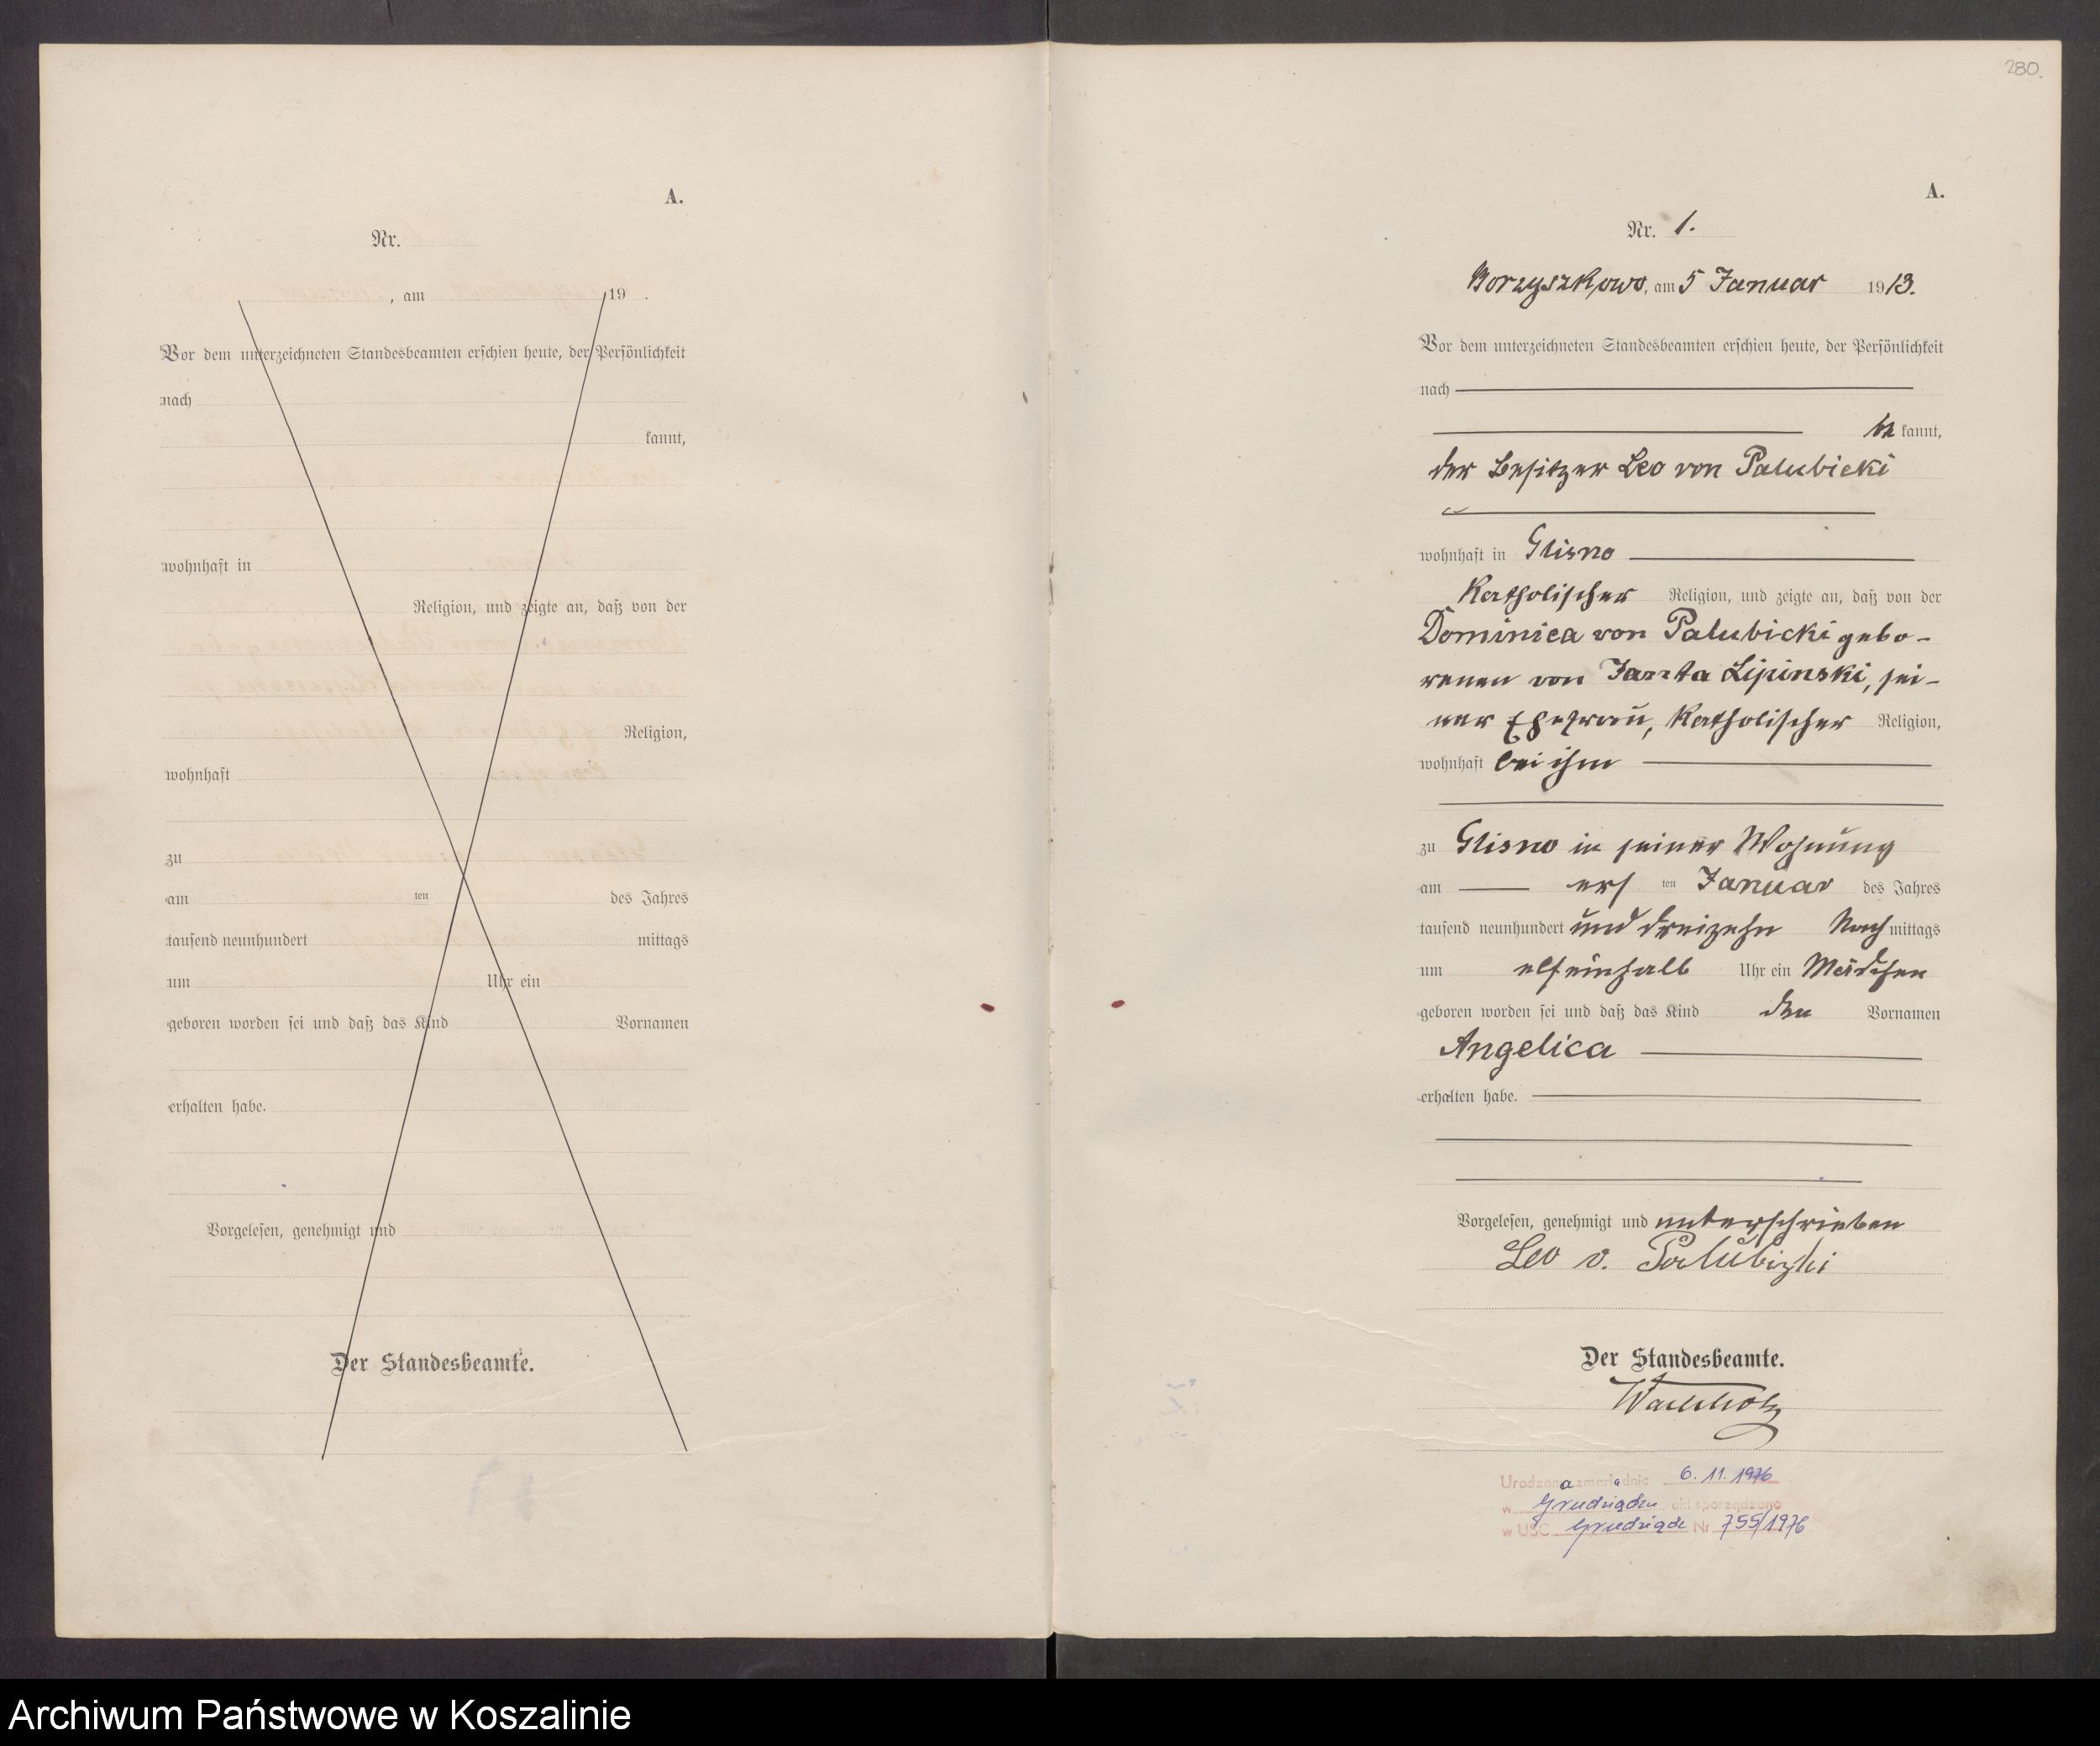 A.
Nr.
, am 19 .
Vor dem unterzeichneten Standesbeamten erschien heute, der Persönlichkeit
nach
kannt,
wohnhaft in
Religion, und zeigte an, daß von der
Religion,
wohnhaft
zu
am ten des Jahres
tausend neunhundert mittags
um Uhr ein
geboren worden sei und daß das Kind Vornamen
erhalten habe.
Vorgelesen, genehmigt und
Der Standesbeamte.
280.
A.
Nr. 1.
Borzyszkowo, am 5 Januar 1913.
Vor dem unterzeichneten Standesbeamten erschien heute, der Persönlichkeit
nach
be kannt,
der Besitzer Leo von Palubicki
wohnhaft in Glisno
Katholischer Religion, und zeigte an, daß von der
Dominica von Palubicki gebo-
renen von Janta Lipinski, sei-
ner Ehefrau, Katholischer Religion,
wohnhaft bei ihm
zu Glisno in seiner Wohnung
am ers ten Januar des Jahres
tausend neunhundert und dreizehn Nach mittags
um elf einhalb Uhr ein Mädchen
geboren worden sei und daß das Kind den Vornamen
Angelica
erhalten habe.
Vorgelesen, genehmigt und unterschrieben
Leo v. Palubizki
Der Standesbeamte.
Wachholz
Urodzona zmarła dnia 6. 11. 1976
w Grudziądzu akt sporządzono
w USC Grudziądz Nr 755/1976
Archiwum Państwowe w Koszalinie